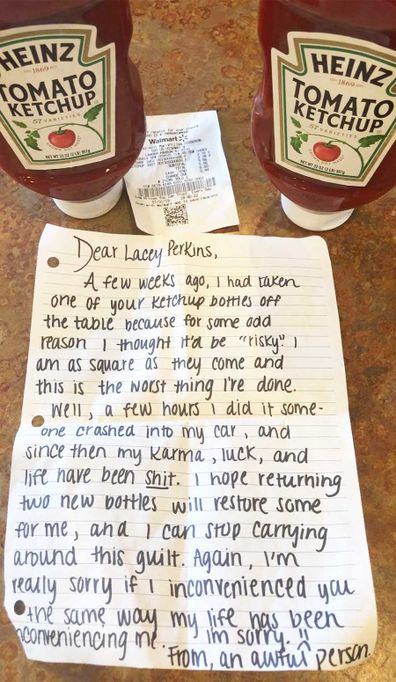 HEINZ
EST 1869
TOMATO
KETCHUP
57 VARIETIES
NET WT 32 OZ (2 LB) 907g
Walmart
HEINZ
EST 1869
TOMATO
KETCHUP
57 VARIETIES
NET WT 32 OZ (2 LB) 907g
Dear Lacey Perkins,
A few weeks ago, I had taken
one of your ketchup bottles off
the table because for some odd
reason I thought it'd be "risky". I
am as square as they come and
this is the worst thing I've done.
Well, a few hours I did it some-
one crashed into my car, and
since then my karma, luck, and
life have been shit. I hope returning
two new bottles will restore some
for me, and I can stop carrying
around this guilt. Again, I'm
really sorry if I inconvenienced you
the same way my life has been
inconveniencing me. I'm sorry. !!
From, an awful person.